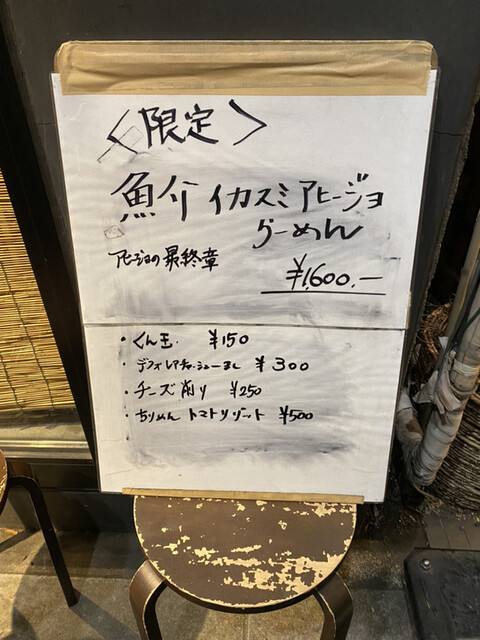 〈限定〉
魚介イカスミアヒージョ
らーめん
アヒージョの最終章
¥1,600.-
・くん玉 ¥150
・デフォレアチャーシュー増し ¥300
・チーズ削り ¥250
・ちりめん トマトリゾット ¥500